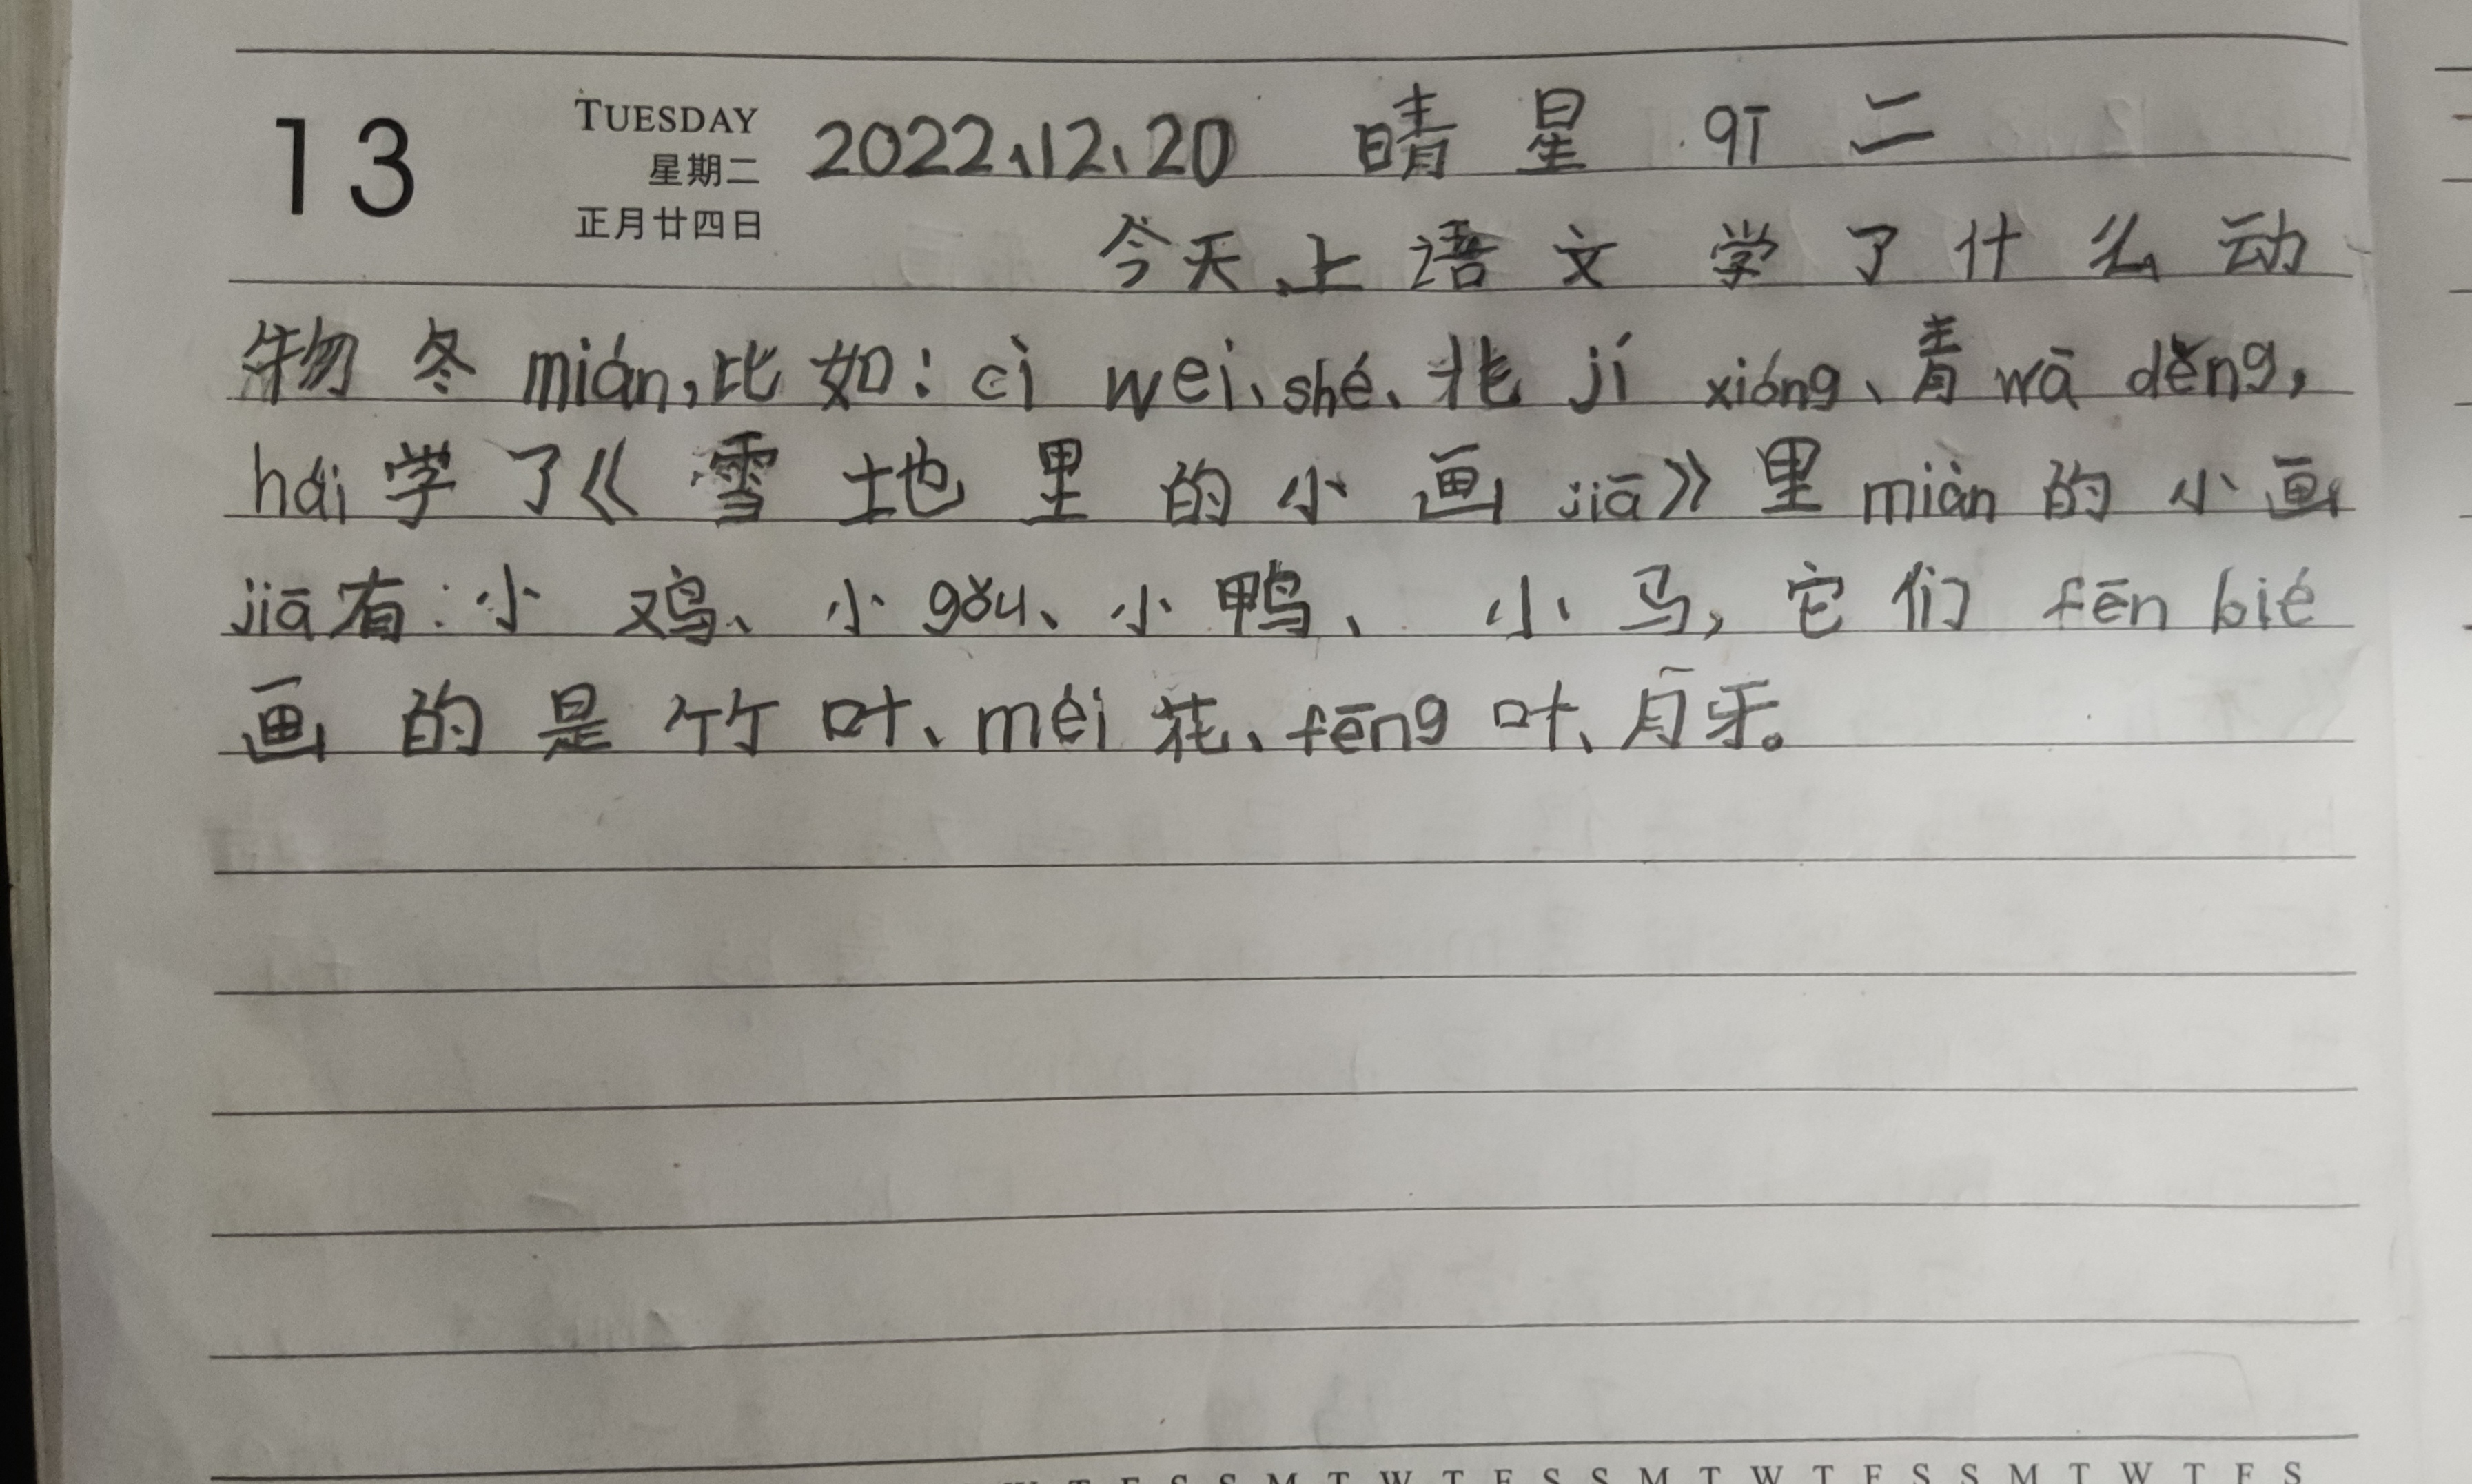 13 TUESDAY 2022、12、20 晴 星 qī 二
星期二
正月廿四日
今天上语文学了什么动
物冬mián,比如:cì wei、shé、北jí xióng、青wā děng,
hái学了《雪地里的小画jiā》里miàn的小画
jiā有:小鸡、小gǒu、小鸭、小马,它们fēn bié
画的是竹叶、méi花、fēng叶、月牙。
T F S S M T W T F S S M T W T F S S M T W T F S